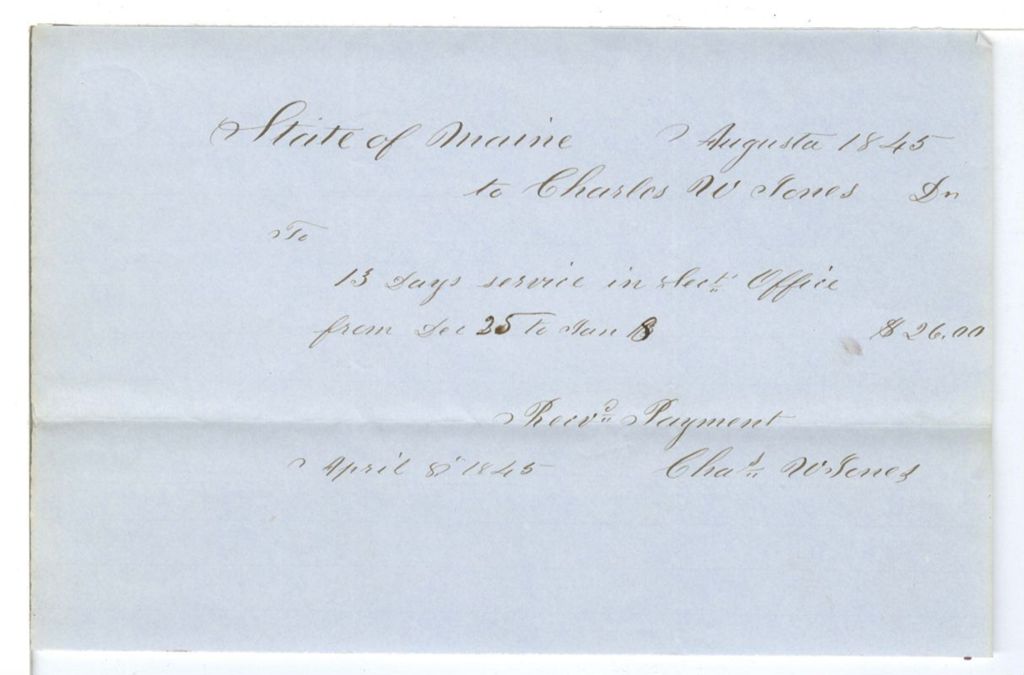 State of Maine Augusta 1845
to Charles W Jones Dr
To
13 Days service in Sect. Office
from Dec 25 to Jan 8 $26.00
Recvd Payment
April 8 1845 Chas W Jones